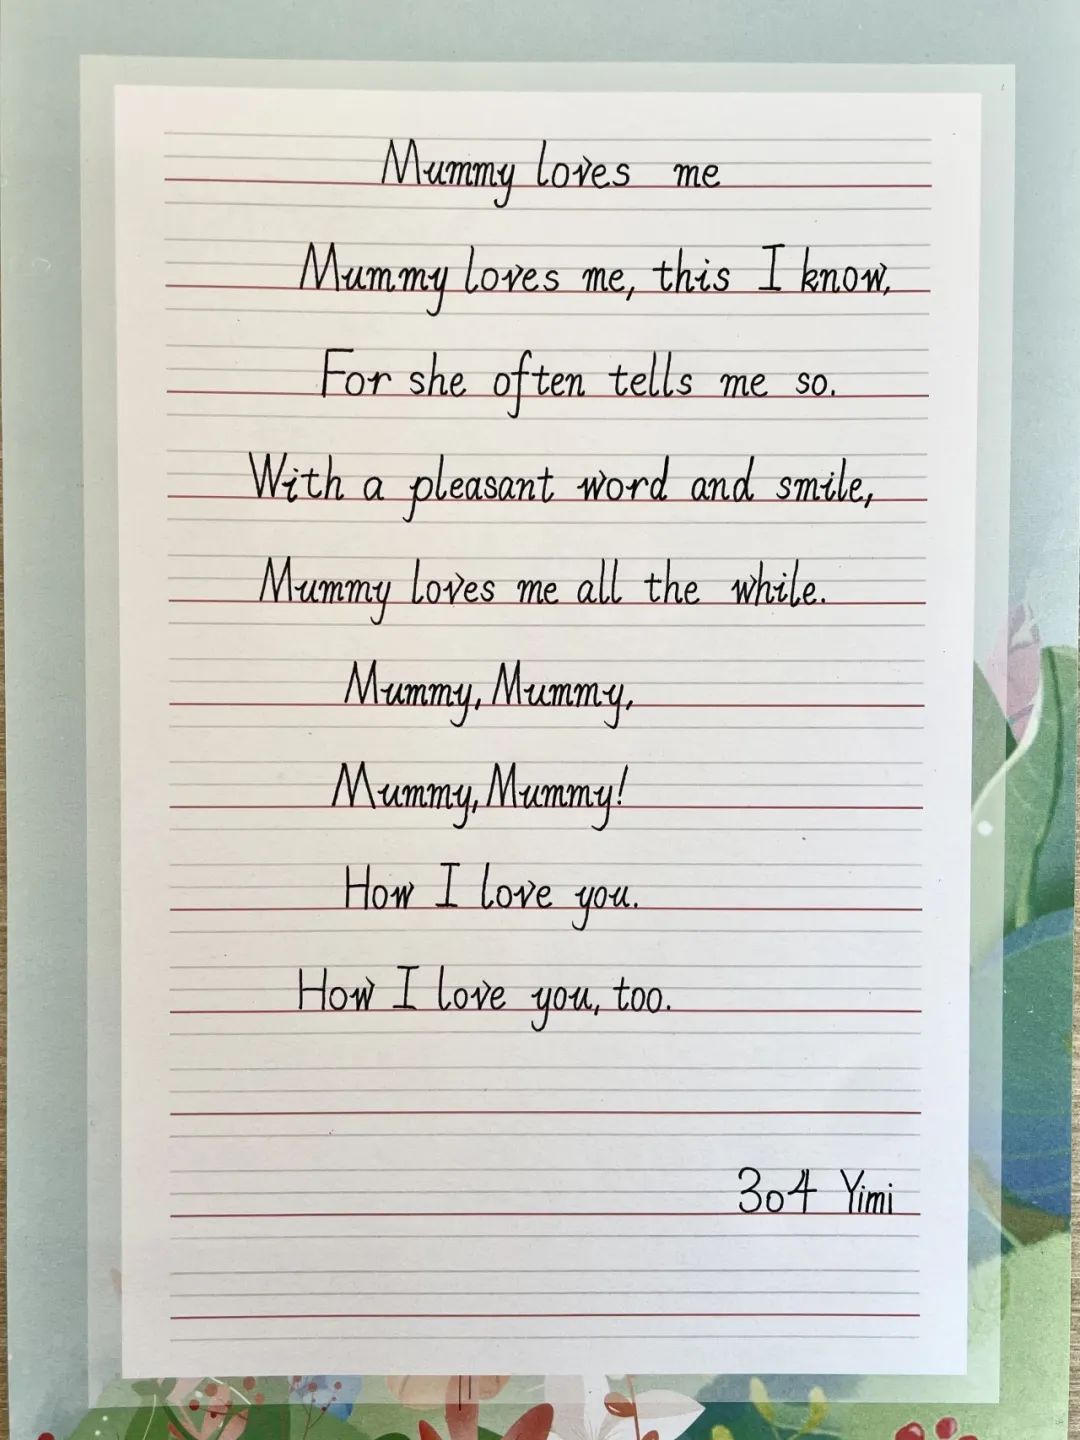 Mummy loves me
Mummy loves me, this I know,
For she often tells me so.
With a pleasant word and smile,
Mummy loves me all the while.
Mummy, Mummy,
Mummy, Mummy!
How I love you.
How I love you, too.
304 Yimi